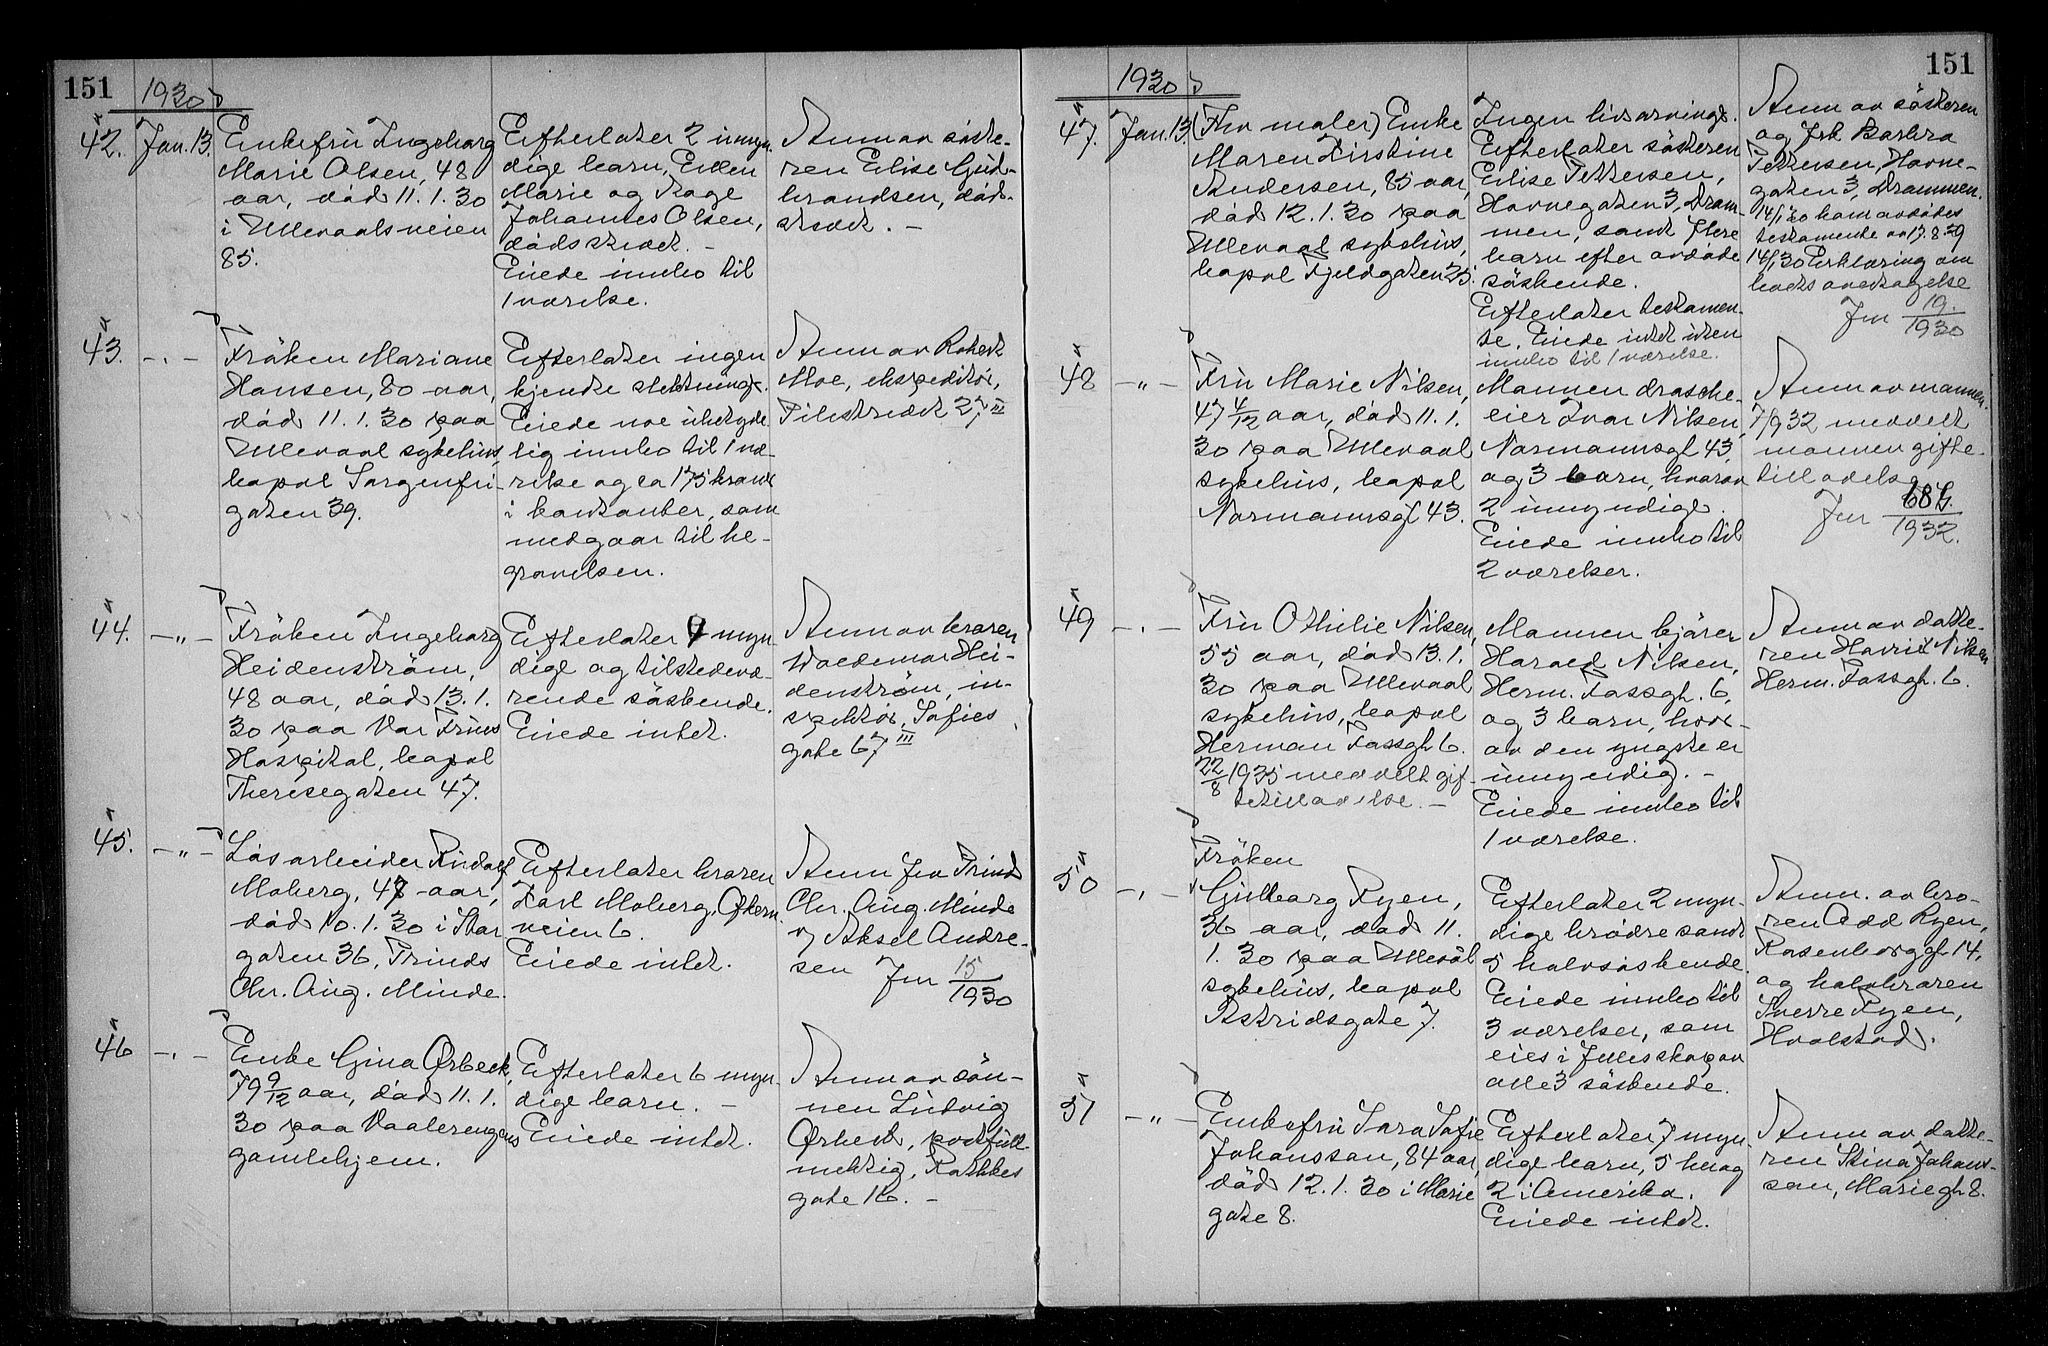 151
1930
42. Jan. 13.
Enkefru Ingeborg
Marie Olsen, 48
aar, død 11.1.30
i Ullevaalsveien
85.
Efterlater 2 umyn-
dige barn, Ellen
Marie og Aage
Johannes Olsen,
dødsstedet. -
Eiede innbo til
1 værelse.
Anm av søste-
ren Elise Gud-
brandsen, døds-
stedet. -
43. -.-
Frøken Mariane
Hansen, 80 aar,
død 11.1.30 paa
Ullevaal sykehus,
bopel Sorgenfri-
gaten 39.
Efterlater ingen
kjendte slektninge.
Eiede noe ubetyde-
lig innbo til 1 væ-
relse og ca 175 kroner
i kontanter, som
medgaar til be-
gravelsen.
Anm av Robert
Moe, ekspeditør,
Pilestredet 27 III
44. -"-
Frøken Ingeborg
Heidenstrøm,
48 aar, død 13.1.
30 paa Vor Frues
Hospital, bopel
Theresegaten 47.
Efterlater 9 myn-
dige og tilstedevæ-
rende søskende.
Eiede intet.
Anm av broren
Waldemar Hei-
denstrøm, in-
spektør, Sofies
gate 67 III
45. -"-
Løsarbeider Rudolf
Moberg, 47 aar,
død 10.1.30 i Stor
gaten 36, Prinds
Chr. Aug. Minde.
Efterlater broren
Karl Moberg, Økern-
veien 6.
Eiede intet.
Anm fra Prinds
Chr. Aug. Minde
v/ Aksel Andre-
sen Jnr 15/1930
46 -.-
Enke Gina Ørbeck,
79 9/12 aar, død 11.1.
30 paa Vaalerengens
gamlehjem.
Efterlater 6 myn-
dige barn. -
Eiede intet.
Anm av søn-
nen Ludvig
Ørbeck, postfull-
mektig, Rathkes
gate 16. -
151
1930
47. Jan. 13.
(Fhv maler) Enke
Maren Kirstine
Andersen, 85 aar,
død 12.1.30 paa
Ullevaal sykehus,
bopel Fjeldgaten 25.
Ingen livsarvinge.
Efterlater søsteren
Elise Pettersen,
Havnegaten 3, Dram-
men, samt flere
barn efter avdøde
søskende.
Efterlater testamen-
te. Eiede intet uten
innbo til 1 værelse.
Anm av søsteren
og frk Barbra
Pettersen, Havne-
gaten 3, Drammen.
14/1 30 kom avdødes
testamente av 17.8.29
14/1 30 Erklæring om
boets overtagelse
Jnr 19./1930
48 -"-
Fru Marie Nilsen,
47 4/12 aar, død 11.1.
30 paa Ullevaal
sykehus, bopel
Normannsgt 43.
Mannen drosche-
eier Ivar Nilsen,
Normannsgt 43,
og 3 barn, hvorav
2 umyndige.
Eiede innbo til
2 værelser.
Anm av mannen.
7/9 32 meddelt
mannen gifte-
tilladelse
Jnr 687./1932.
49 -.-
Fru Othilie Nilsen,
55 aar, død 13.1.
30 paa Ullevaal
sykehus, bopel
Herman Fossgt 6.
22/8 1935 meddelt gif-
tetilladelse. -
Mannen kjører
Harald Nilsen,
Herm. Fossgt. 6,
og 3 barn, hvor-
av den yngste er
umyndig. -
Eiede innbo til
1 værelse.
Anm av datte-
ren Harriet Nilsen
Herm. Fossgt. 6.
50 -.-
Frøken
Gudborg Ryen,
36 aar, død 11.
1.30 paa Ullevål
sykehus, bopel
Astridsgate 7.
Efterlater 2 myn-
dige brødre samt
5 halvsøskende.
Eiede innbo til
3 værelser, som
eies i fellesskap av
alle 3 søskende.
Anm. av bro-
ren Odd Ryen,
Rosenborggt 14,
og halvbroren
Sverre Ryen,
Hvalstad.
51 -"-
Enkefru Sara Sofie
Johansson, 84 aar,
død 12.1.30 i Marie
gate 8.
Efterlater 7 myn-
dige barn, 5 her og
2 i Amerika.
Eiede intet.
Anm av datte-
ren Stina Johans-
son, Mariegt 8.